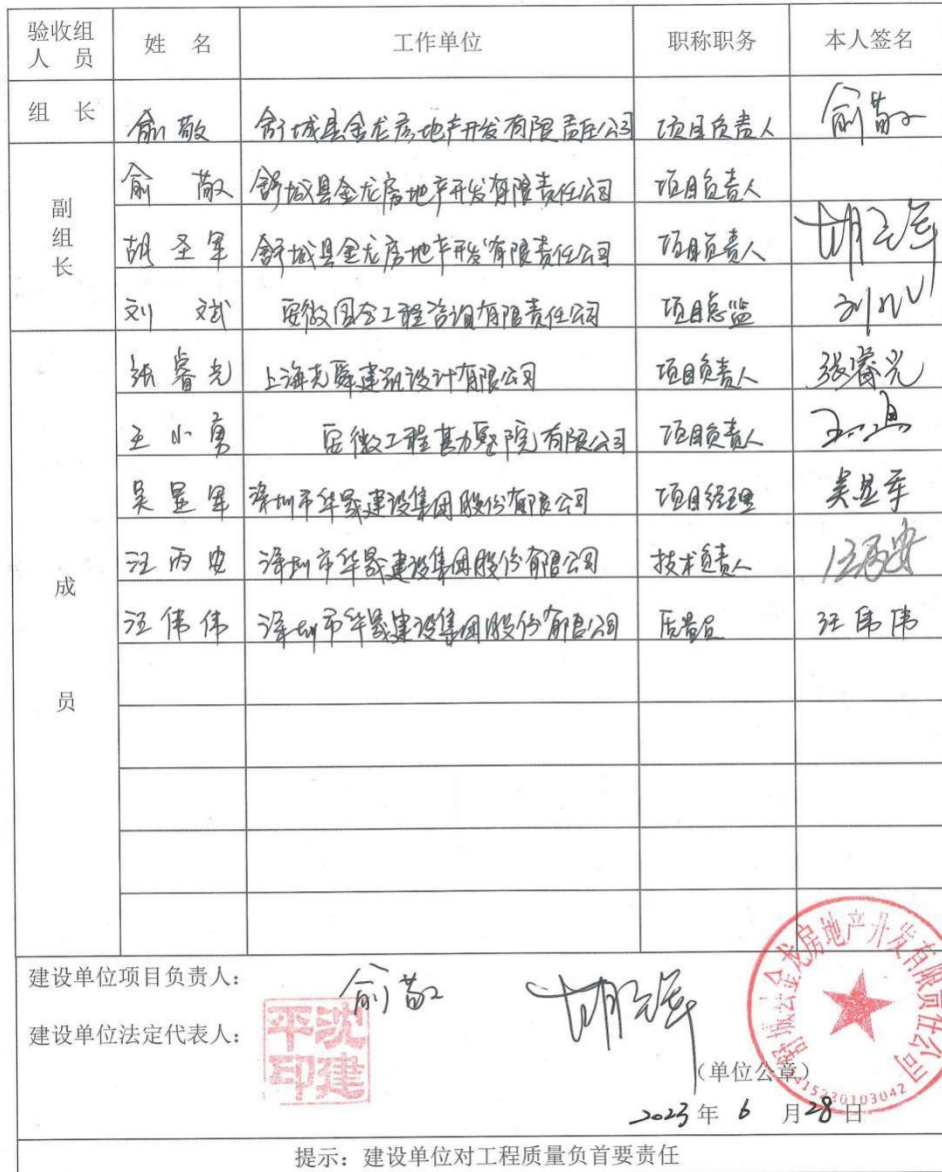 验收组人员 姓名 工作单位 职称职务 本人签名
组长 俞敬 舒城县金龙房地产开发有限责任公司 项目负责人 俞敬
副组长 俞敬 舒城县金龙房地产开发有限责任公司 项目负责人
胡圣军 舒城县金龙房地产开发有限责任公司 项目负责人 胡圣军
刘斌 安徽国合工程咨询有限责任公司 项目总监 刘斌
成员 张睿光 上海尧舜建筑设计有限公司 项目负责人 张睿光
王小勇 安徽工程勘察院有限公司 项目负责人
吴昱军 深圳市华晟建设集团股份有限公司 项目经理 吴昱军
汪丙安 深圳市华晟建设集团股份有限公司 技术负责人 汪丙安
汪伟伟 深圳市华晟建设集团股份有限公司 质量员 汪伟伟
建设单位项目负责人: 俞敬 胡圣军
建设单位法定代表人: 沈建平印
舒城县金龙房地产开发有限责任公司
(单位公章)
2023年6月28日
提示:建设单位对工程质量负首要责任